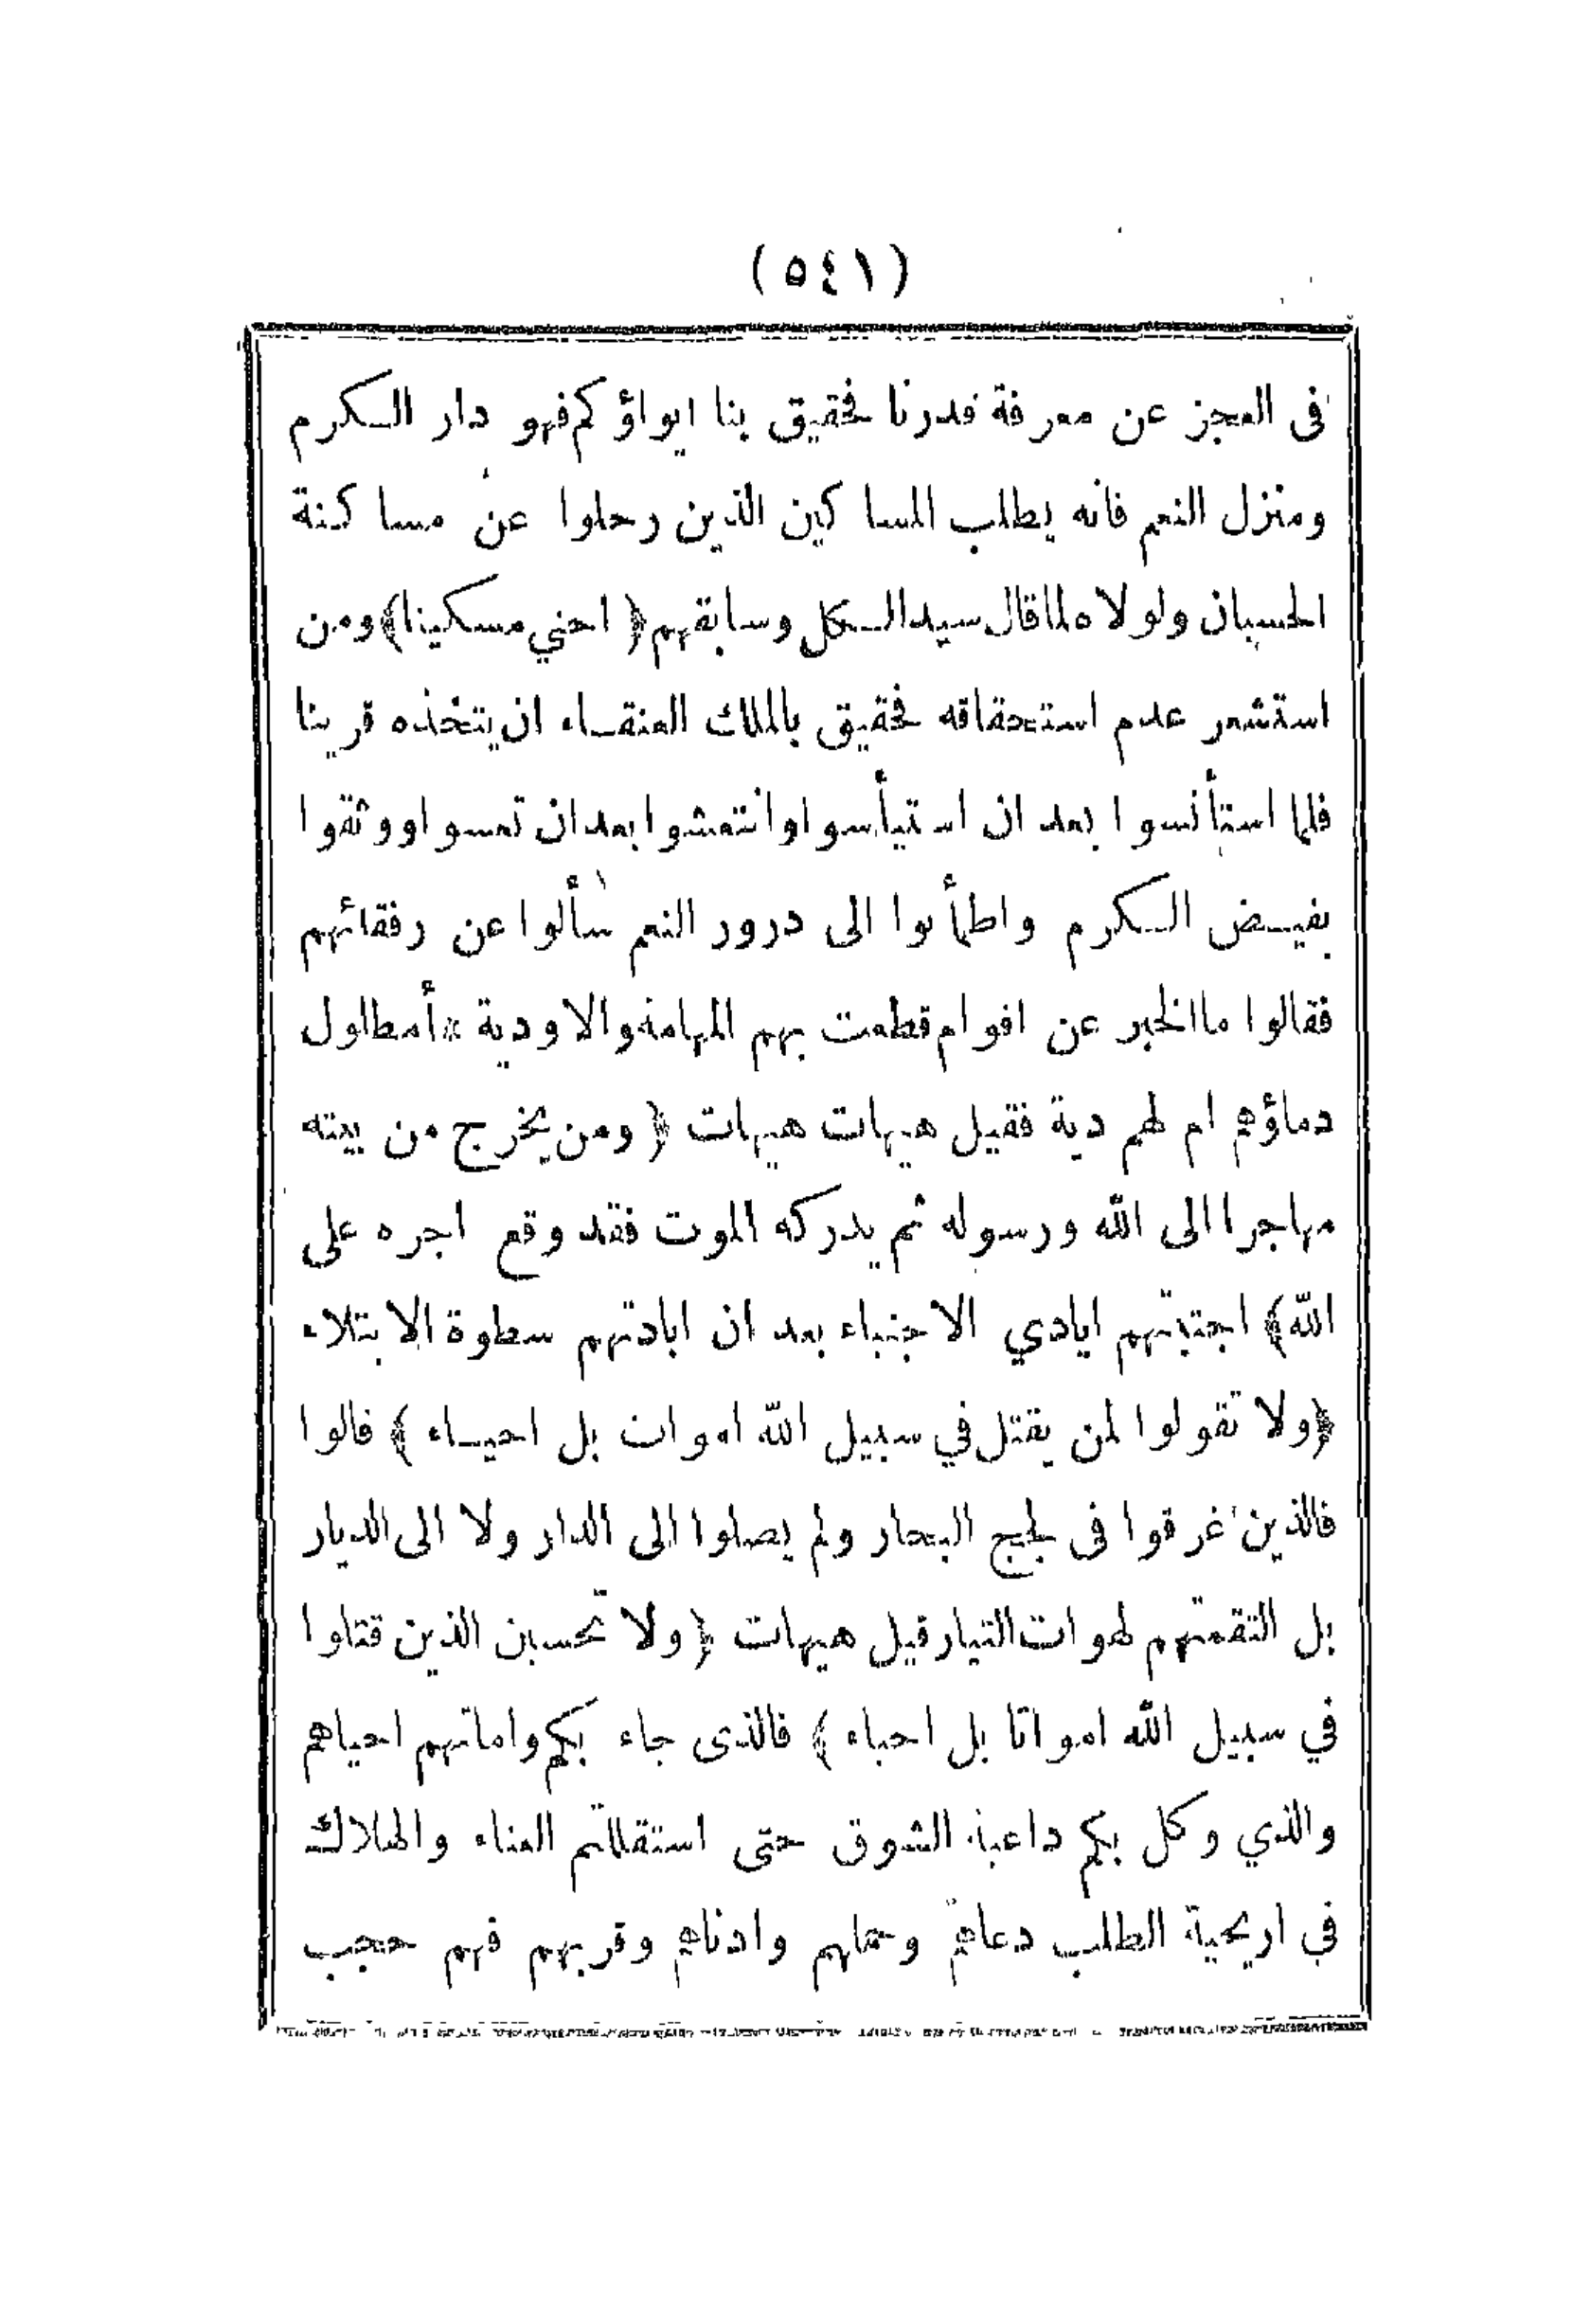 (٥٤١)
فى العجز عن معرفة قدرنا فحقيق بنا ايواؤكم فهو دار الكرم
ومنزل النعم فانه يطلب المساكين الذين رحلوا عن مساكنة
الحسبان ولولاه لما قال سيد الكل وسابقهم ﴿احيني مسكينا﴾ ومن
استشعر عدم استحقاقه فحقيق بالملك العنقاء ان يتخذه قرينا
فلما استأنسوا بعد ان استيأسوا وانتعشوا بعد ان تعسوا ووثقوا
بفيض الكرم واطمأنوا الى درور النعم سألوا عن رفقائهم
فقالوا ما الخبر عن اقوام قطعت بهم المهامه والاودية * أمطلول
دماؤهم ام لهم دية فقيل هيهات هيهات ﴿ومن يخرج من بيته
مهاجرا الى الله ورسوله ثم يدركه الموت فقد وقع اجره على
الله﴾ اجتبتهم ايادي الاجتباء بعد ان ابادتهم سطوة الابتلاء
﴿ولا تقولوا لمن يقتل في سبيل الله اموات بل احياء﴾ قالوا
فالذين غرقوا فى لجج البحار ولم يصلوا الى الدار ولا الى الديار
بل التقمتهم لهوات التيار قيل هيهات ﴿ولا تحسبن الذين قتلوا
في سبيل الله امواتا بل احياء﴾ فالذى جاء بكم واماتهم احياهم
والذي وكل بكم داعية الشوق حتى استقللتم العناء والهلاك
في اريحية الطلب دعاهم وحملهم وادناهم وقربهم فهم حجب